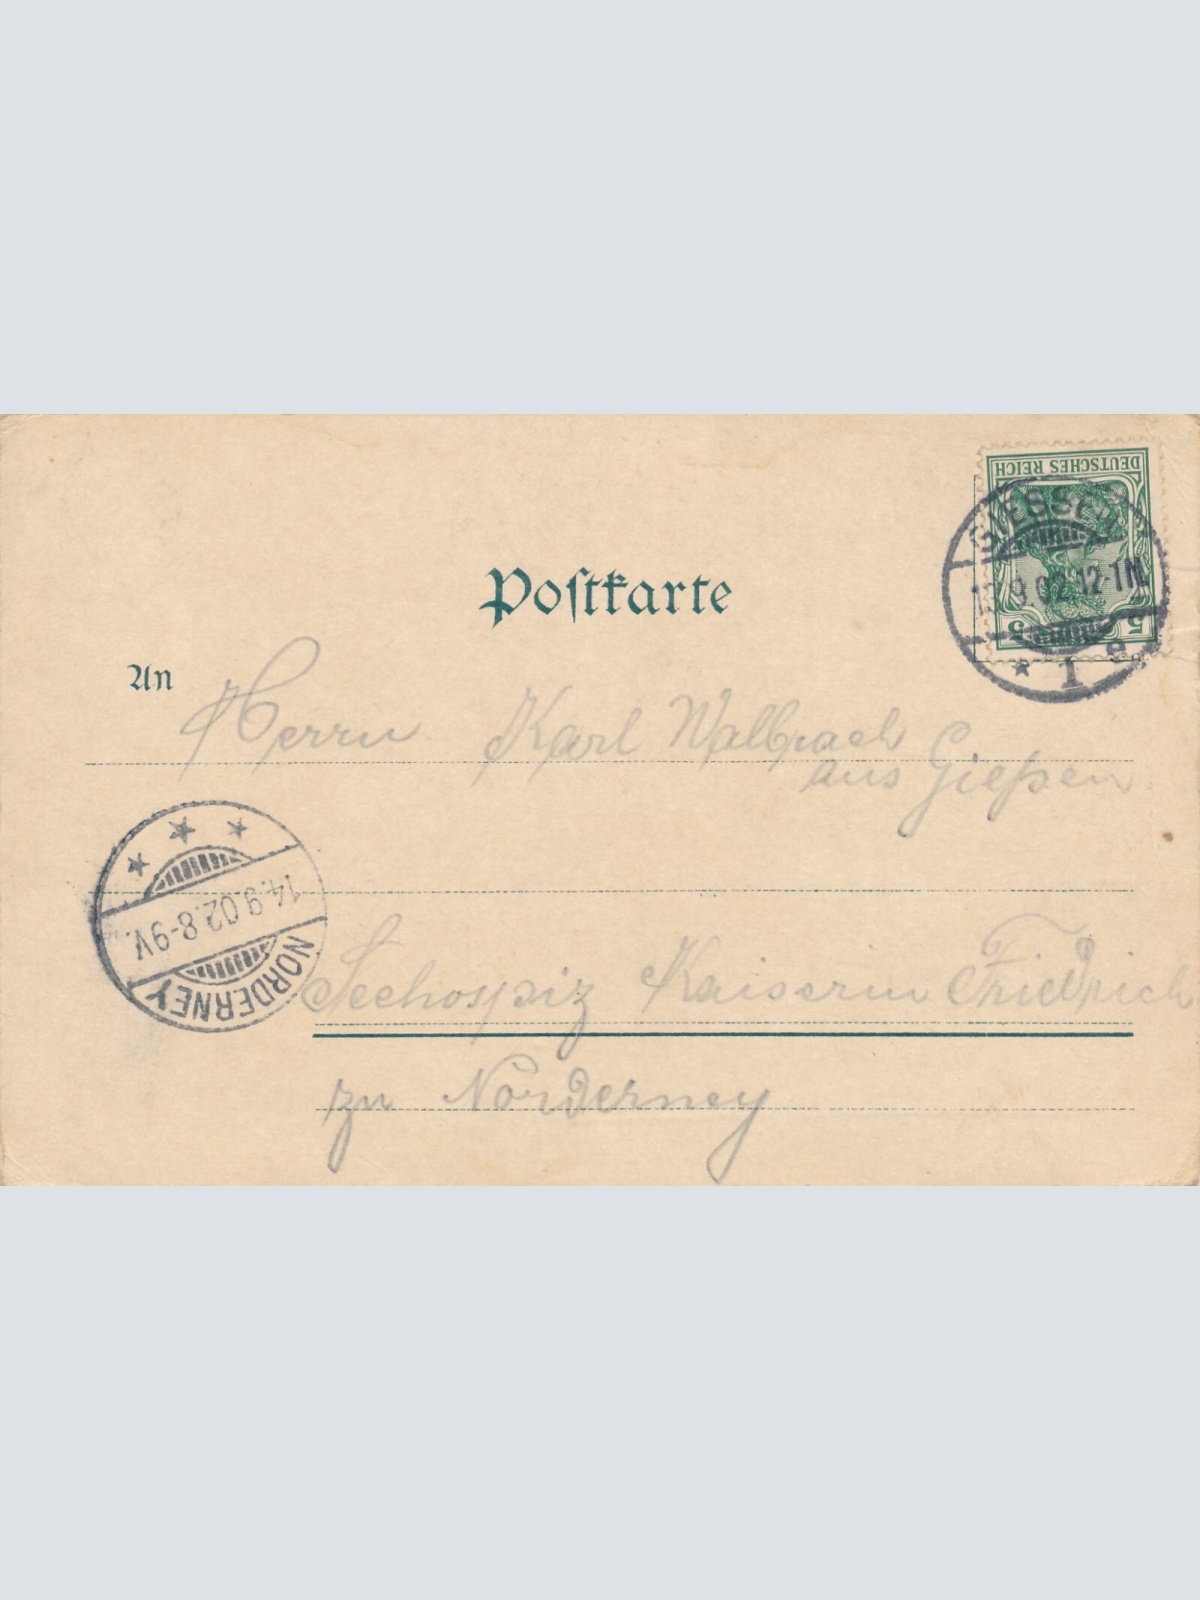 DEUTSCHES REICH
5 5
GIESSEN
9.02.12-1N.
* 1 e
Postkarte
An
Herrn Karl Walbrach
aus Gießen
14.9.02.8-9V.
NORDERNEY
Seehospiz Kaiserin Friedrich
zu Norderney